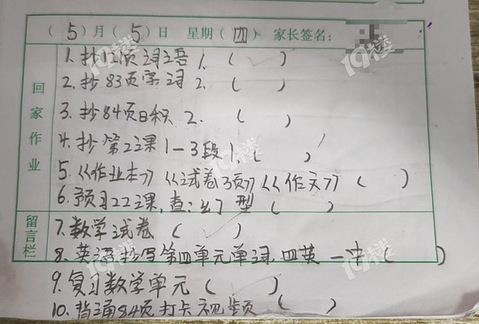 (5)月(5)日 星期(四) 家长签名:
回家作业
1.抄12页词语1.( )
2.抄83页字词2.( )
3.抄84页日积2.( )
4.抄第22课1-3段1( )
5.《作业本》《试卷3页》《作文》( )
6.预习22课,查:出了型( )
留言栏
7.数学试卷( )
8.英语抄写第四单元单词.四英一中( )
9.复习数学单元( )
10.背诵84页打卡视频( )
19楼